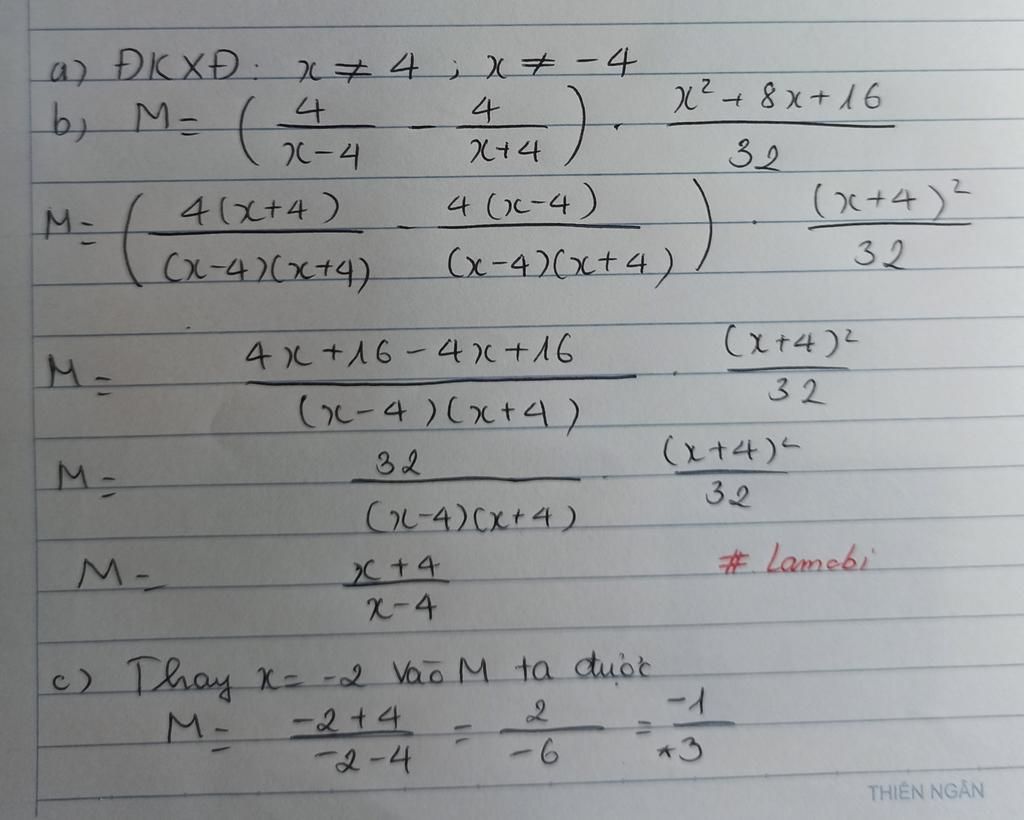 a) ĐKXĐ: x ≠ 4 ; x ≠ -4
b) M = ( 4/(x-4) - 4/(x+4) ) . (x² + 8x + 16)/32
M = ( 4(x+4)/((x-4)(x+4)) - 4(x-4)/((x-4)(x+4)) ) . (x+4)²/32
M = (4x + 16 - 4x + 16)/((x-4)(x+4)) . (x+4)²/32
M = 32/((x-4)(x+4)) (x+4)²/32
M = (x+4)/(x-4)
# Lamebi
c) Thay x = -2 vào M ta được
M = (-2+4)/(-2-4) = 2/(-6) = -1/3
THIÊN NGÂN